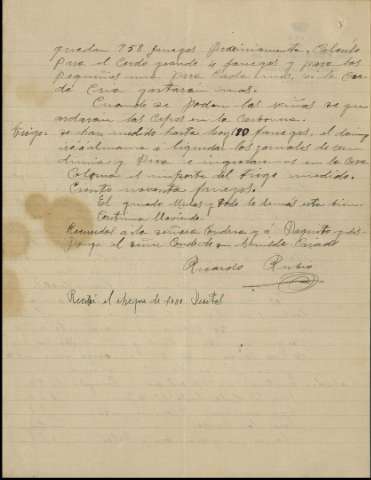 quedan 758 fanegas proximamente, Calculo
Para el Cerdo grande 4 fanegas y para los
pequeños una para Cada uno, si la Cer
da Cria gastarán mas.
Cuando se poden las viñas se que
mdaran las Cepas en la Carbonera.
Trigo. = se han medido hasta hoy 190 fanegas, el
y liquidar los jornales de ven
dimia y Pisa e ingresaremos en la Caja
Colonia el importe del trigo medido.
Ciento noventa fanegas.
El ganado Mular y todo lo demás esta bien.
Continua lloviendo.
Recuerdos a la señora Condesa y á Paquito y dis-
ponga el señor Conde de su Humilde Criado
Ricardo Rubio
Recibí el cheque de 1000 Pesetas